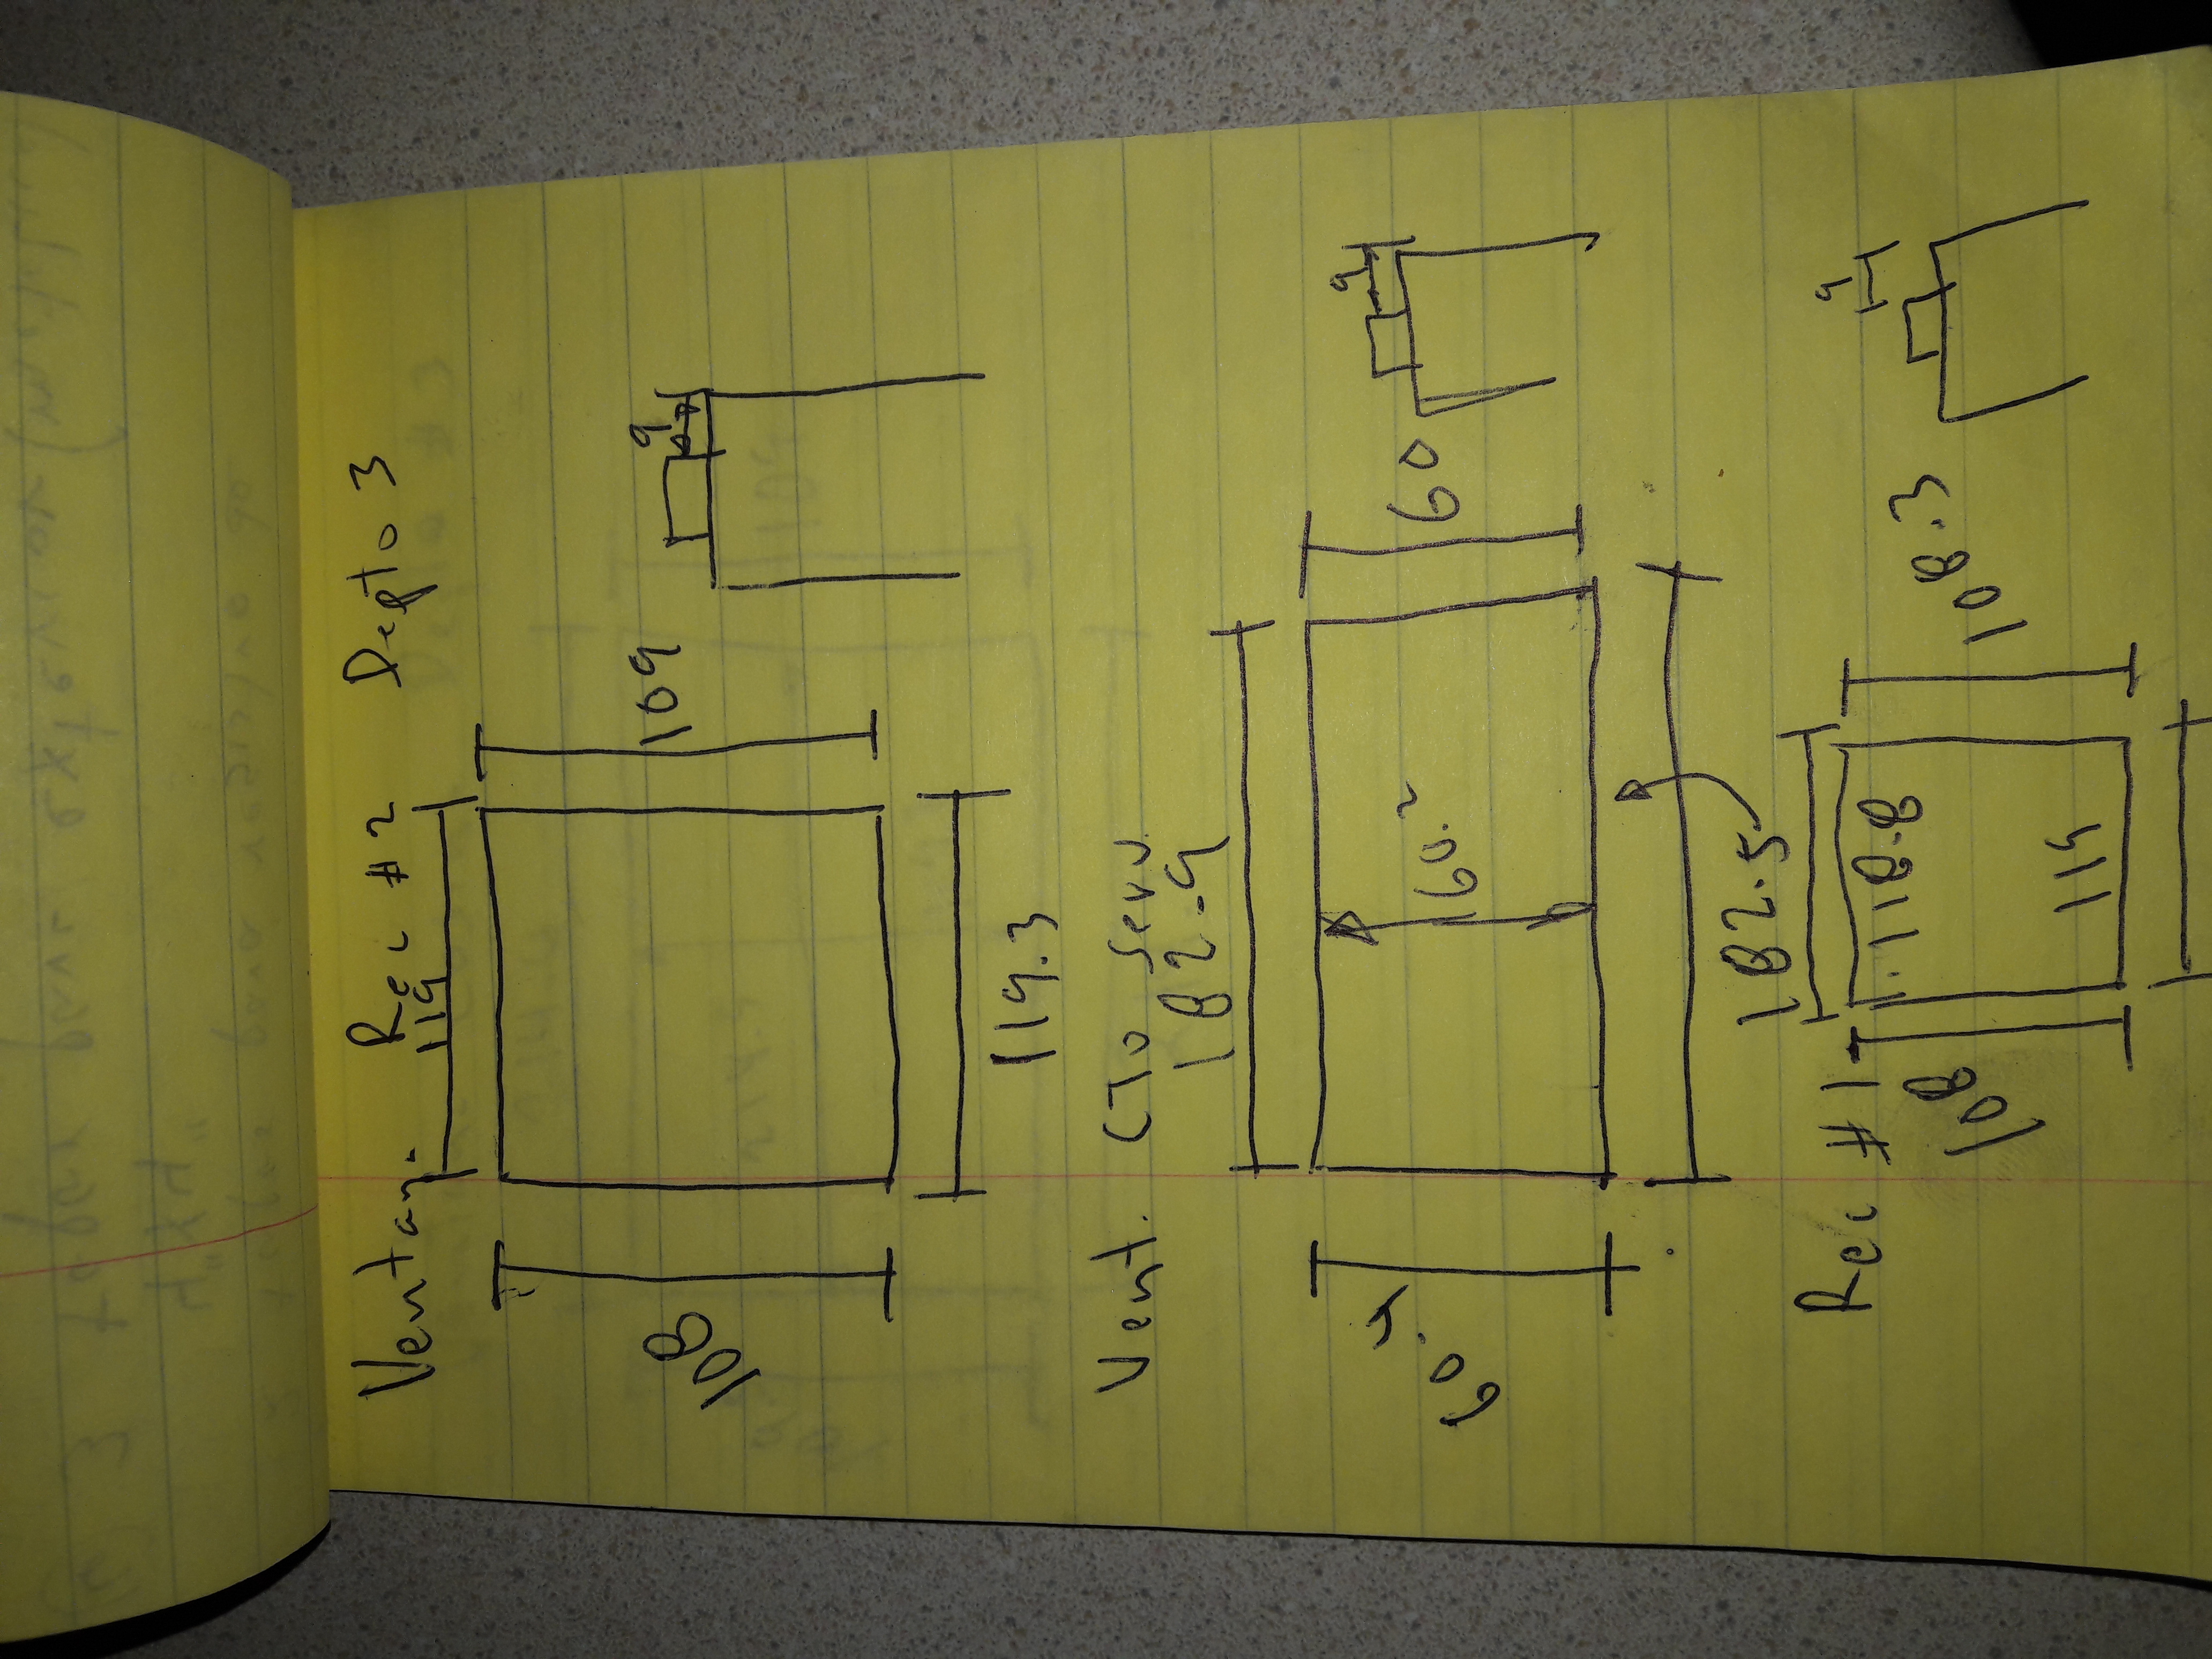 Ventana Rec #2 Depto 3
119
108
109
9
119.3
Vent. CTo Serv.
182.9
60.4
60.2
60
9
182.5
Rec #1
118.8
108
108.3
9
119